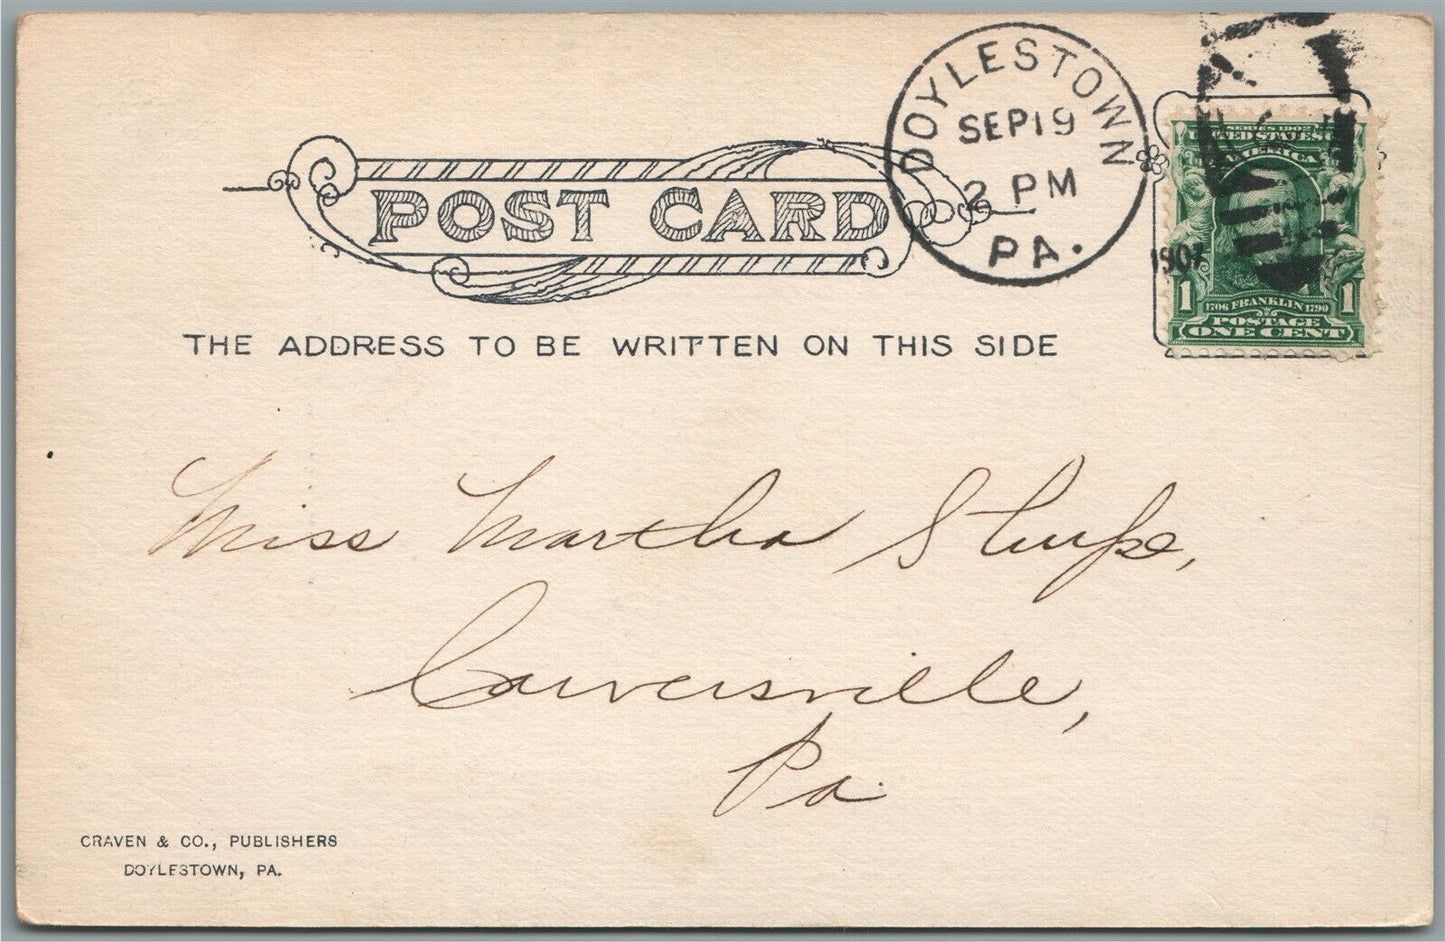 POST CARD
THE ADDRESS TO BE WRITTEN ON THIS SIDE
DOYLESTOWN
SEP 19
2 PM
PA.
1907
SERIES 1902
UNITED STATES
AMERICA
1 1706 FRANKLIN 1790 1
POSTAGE
ONE CENT
Miss Martha
Carversville,
Pa.
CRAVEN & CO., PUBLISHERS
DOYLESTOWN, PA.